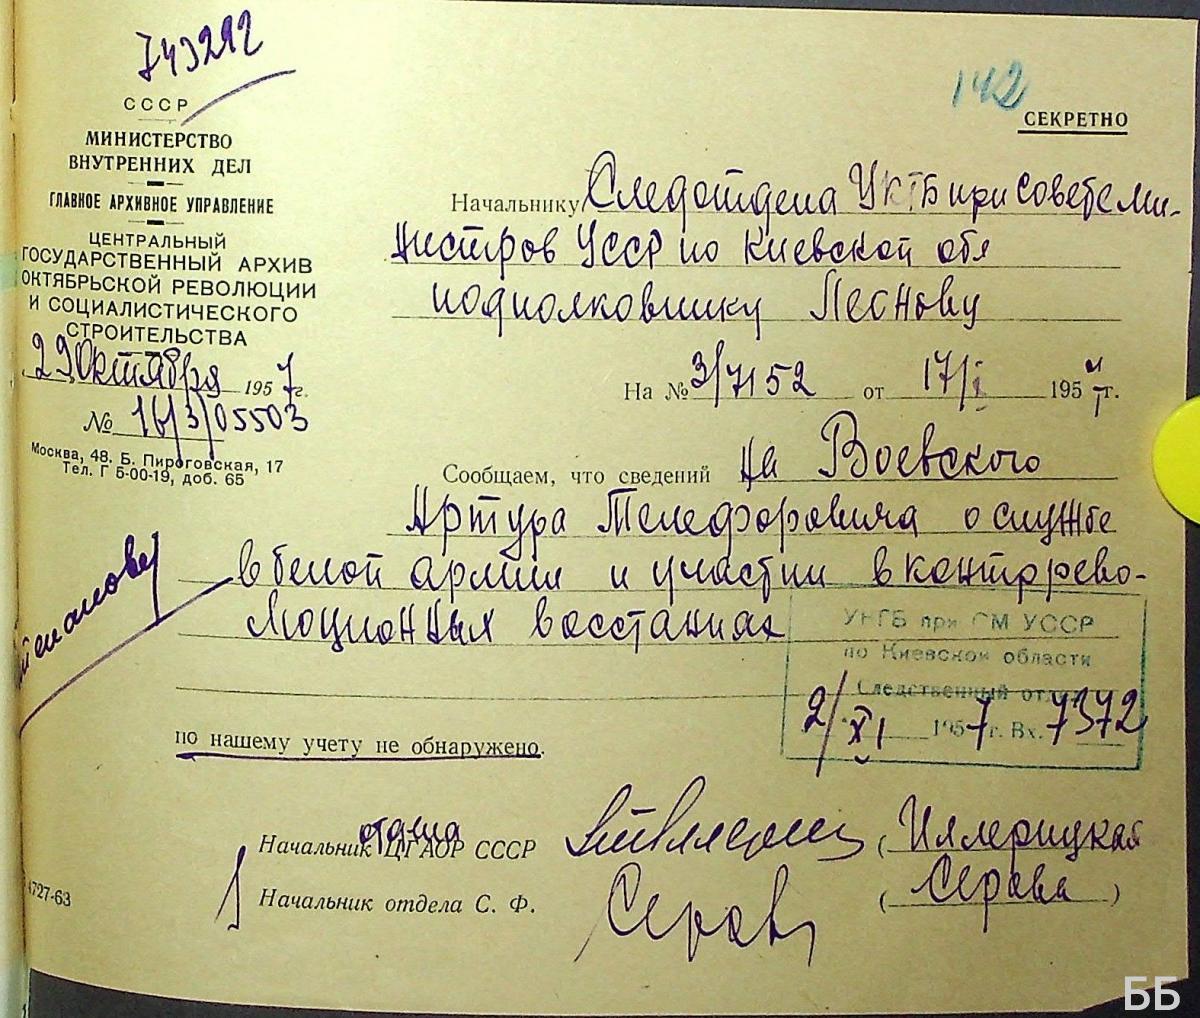 743292
142
СССР
СЕКРЕТНО
МИНИСТЕРСТВО
ВНУТРЕННИХ ДЕЛ
ГЛАВНОЕ АРХИВНОЕ УПРАВЛЕНИЕ
ЦЕНТРАЛЬНЫЙ
ГОСУДАРСТВЕННЫЙ АРХИВ
ОКТЯБРЬСКОЙ РЕВОЛЮЦИИ
И СОЦИАЛИСТИЧЕСКОГО
СТРОИТЕЛЬСТВА
29 Октября 1957 г.
№ 16/3/05503
Москва, 48. Б. Пироговская, 17
Тел. Г 5-00-19, доб. 65
Начальнику Следотдела УКГБ при Совете Ми-
нистров УССР по Киевской обл
подполковнику Леснову
На № 3/7152 от 17/ 195 г.
Сообщаем, что сведений на Воевского
Артура Телефоровича о службе
в белой армии и участии в контррево-
люционных восстаниях
по нашему учету не обнаружено.
УКГБ при СМ УССР
по Киевской области
Следственный отдел
2/XI 1957 г. Вх. 7372
Начальник отдела ЦГАОР СССР
Начальник отдела С. Ф. Серова (Серова)
4727-63
ББ